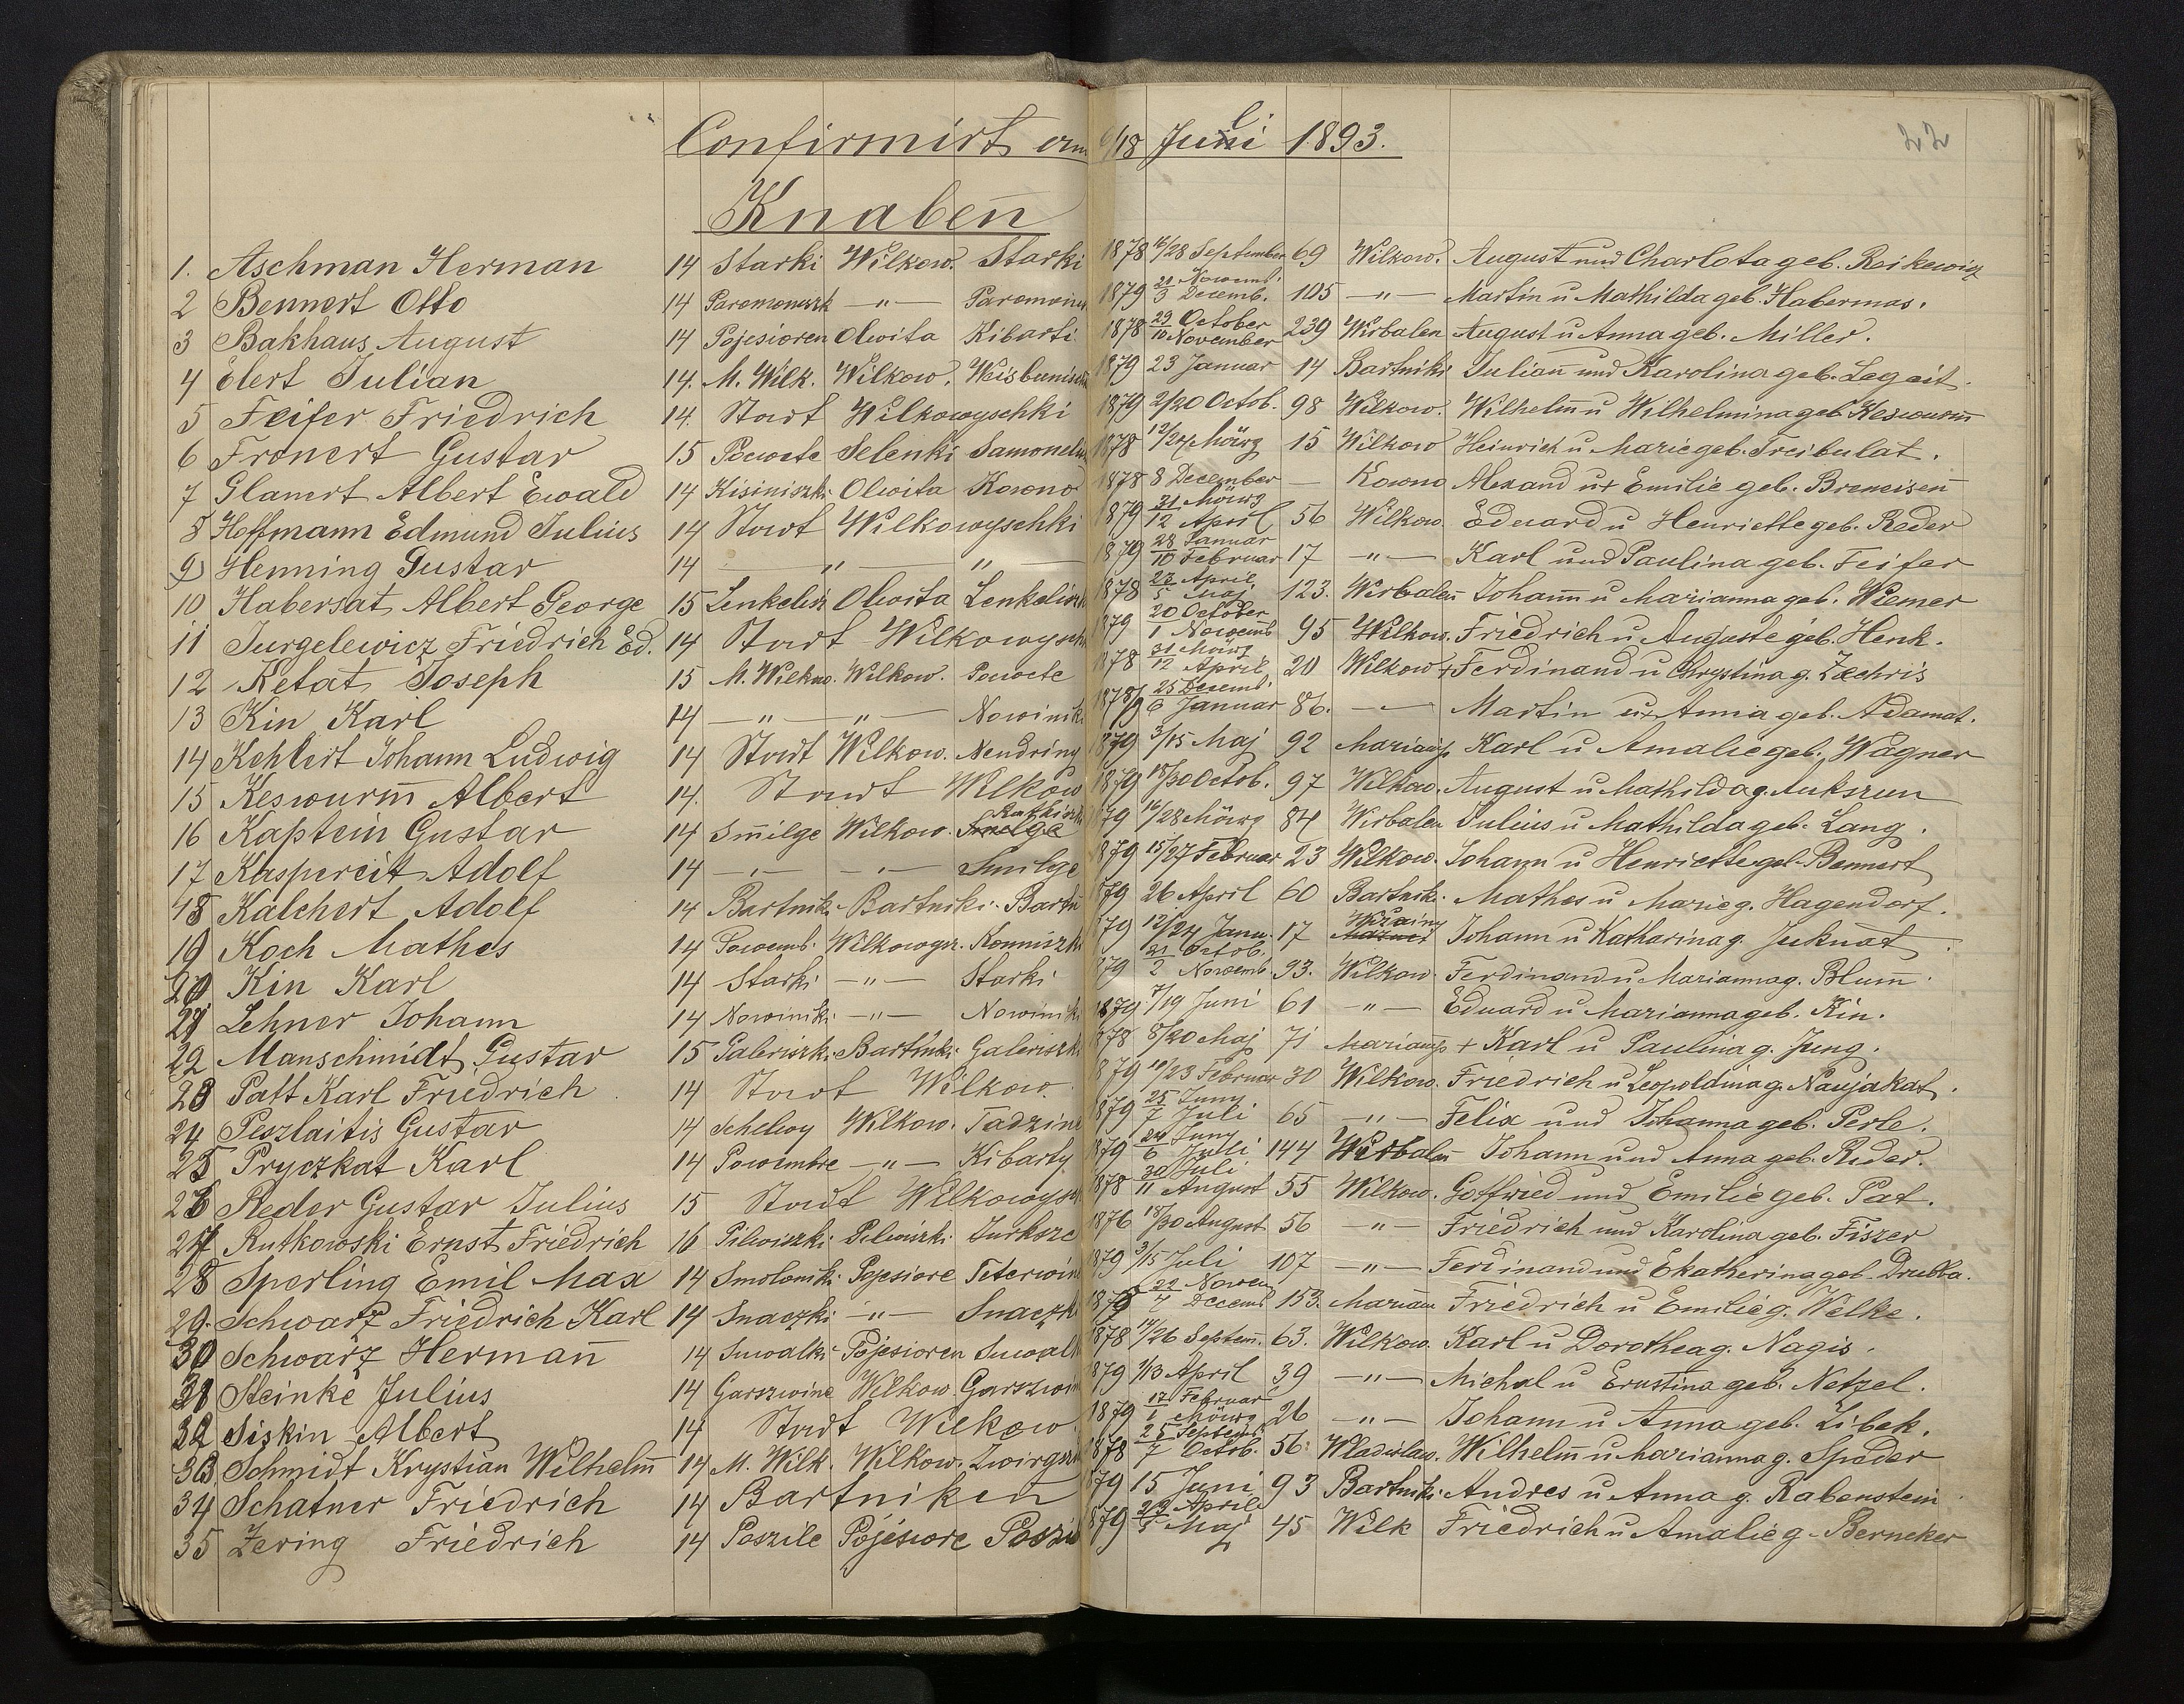 22
Confirmirt am 6/18 Juli 1893.
Knaben
1. Aschman Herman 14 Starki Wilkow. Starki 1878 16/28 September 69 Wilkow. August und Charlota geb. Reikewicz
2 Bennert Otto 14 —"— 1879 21 Novemb. 3 Decemb. 105 —"— Martin u Mathilda geb. Habermas.
3 Bakhaus August 14 Pojesioren Olwita Kibarti 1878 29 October 10 November 239 Wirbalen August u Anna geb. Miller.
4 Elert Julian 14. M. Wilk. Wilkow. 1879 23 Januar 14 Bartniki Julian und Karolina geb. Legeit.
5 Feifer Friedrich 14. Stadt Wilkowyschki 1879 2/20 Octob. 98 Wilkow. Wilhelm̄ u Wilhelmina geb. Keswurm̄
6 Fronert Gustav 15 Powoete Selenki 1878 12/24 März 15 Wilkow Heinrich u Marie geb. Treibulat.
7 Glanert Albert Ewald 14 Kisiniszki Olwita Kowno 1878 8 December — Kowno Alexand u + Emilie geb. Bremeisen̄
8 Hoffmann Edmund Julius 14 Stadt Wilkowyschki 1879 31 März 12 April 56 Wilkow. Eduard u Henriette geb. Reder
9) Henning Gustav 14 — " — " — 1879 28 Januar 10 Februar 17 —"— Karl und Paulina geb. Feifer
10 Habersat Albert George 15 Lenkelisz Olwita Lenkeliszk 1878 23 April 5 Maj 123. Wirbalen̄ Johann̄ u Marianna geb. Wiemer
11 Jurgelewicz Friedrich Ed. 14 Stadt Wilkowysch 1879 20 October 1 Novemb 95 Wilkow. Friedrich u Auguste geb. Henk.
12 Ketat Joseph 15 M. Wilkow. Wilkow. Powoete 1878 31 März 12 April 20 Wilkow + Ferdinand u Chrystina g. Zechris
13 Kin Karl 14 —"— "— Nowinik 1878/9 25 Decemb. 6 Januar 86. —"— Martin u + Anna geb. Adamat.
14 Kehlert Johann Ludwig 14 Stadt Wilkow. Nendring 1879 3/15 Maj 92 Mariamp Karl u Amalie geb. Wagner
15 Keswurm̄ Albert 14. Stadt Wilkow 1879 18/30 Octob. 97 Wilkow. August u Mathilda g. Aukszun
16 Kaptein Gustav 14 Smilge Wilkow. Smilge 1879 16/28 März 84 Wirbalen Julius u Mathilda geb. Lang.
17 Kaspereit Adolf 14 —"— —"— Smilge 1879 15/27 Februar 23 Wilkow. Johann u Henriette geb. Bennert
18 Kalchert Adolf 14 Bartniki Bartniki Bartn 1879 26 April 60 Bartniki. Mathes u Marie g. Hagendorf.
19 Koch Mathes 14 Powemb. Wilkowysz. Romniszk 1879 12/24 Janu. 17 Johann u Katharina g. Juknat.
20 Kin Karl 14 Starki —"— Starki 1879 21 Octob. 2 Novemb. 93. Wilkow. Ferdinand u Marianna g. Blum̄.
21 Lehner Johann 14 Nowiniki —"— Nowinik 1879 7/19 Juni 61 —"— Eduard u Marianna geb. Kin.
22 Manschmidt Gustav 15 Galeriszki Bartniki Galeriszk 1878 8/20 Maj 71 Mariamp + Karl u Paulina g. Jung.
23 Patt Karl Friedrich 14 Stadt Wilkow. 1879 11/23 Februar 30 Wilkow. Friedrich u Leopoldina g. Naujakat.
24 Peszlaitis Gustav 14 Schelwy Wilkow. Tadzine 1879 25 Juny 7 Juli 65 —"— Felix und Johanna geb. Perle.
25 Pryczkat Karl 14 Powembre —"— Kibarty 1879 24 Juny 6 Julli 144 Wirbalen̄ Johann und Anna geb. Reder.
26 Reder Gustav Julius 15 Stadt Wilkowysch 1878 30 Juli 11 August 55 Wilkow. Gottfried und Emilie geb. Pat.
27 Rutkowski Ernst Friedrich 16 Pilwiszki Pilwiszki Jurksze 1876 18/30 August 56 —"— Friedrich und Karolina geb. Fiszer
28 Sperling Emil Max 14 Smoloniki Pojesiore Teterwin 1879 3/15 Juli 107 —"— Ferdinand und Ekatherina geb. Drubba.
29. Schwarz Friedrich Karl 14 Snaczki —"— Snaczk 1878 22 Novem 4 Decemb 153. Mariam Friedrich u Emilie g. Welke.
30 Schwarz Herman̄ 14 Suwalki Pojesioren Suwalk 1878 14/26 Septem̄. 63. Wilkow. Karl u Dorothea g. Nagis.
31 Steinke Julius 14 Garszwine Wilkow Garszwin 1879 1/13 April 39 —"— Michal u Ernstina geb. Netzel.
32 Siskin Albert 14 Stadt Wilkow 1879 17 Februar 1 März 26 —"— Johann u Anna geb. Libek.
33. Schmidt Krystian Wilhelm̄ 14 M. Wilk. Wilkow. Zwirgzd 1878 25 Septemb 7 Octob. 56 Wladislaw. Wilhelm̄ u Marianna g. Speder
34 Schatner Friedrich 14 Bartniken 1879 15 Juni 93 Bartniki. Andres u Anna g. Rabenstein
35 Zering Friedrich 14 Poszile Pojesiore Poszil 1879 23 April 5 Maj 45 Wilk Friedrich u Amalie g. Berneker